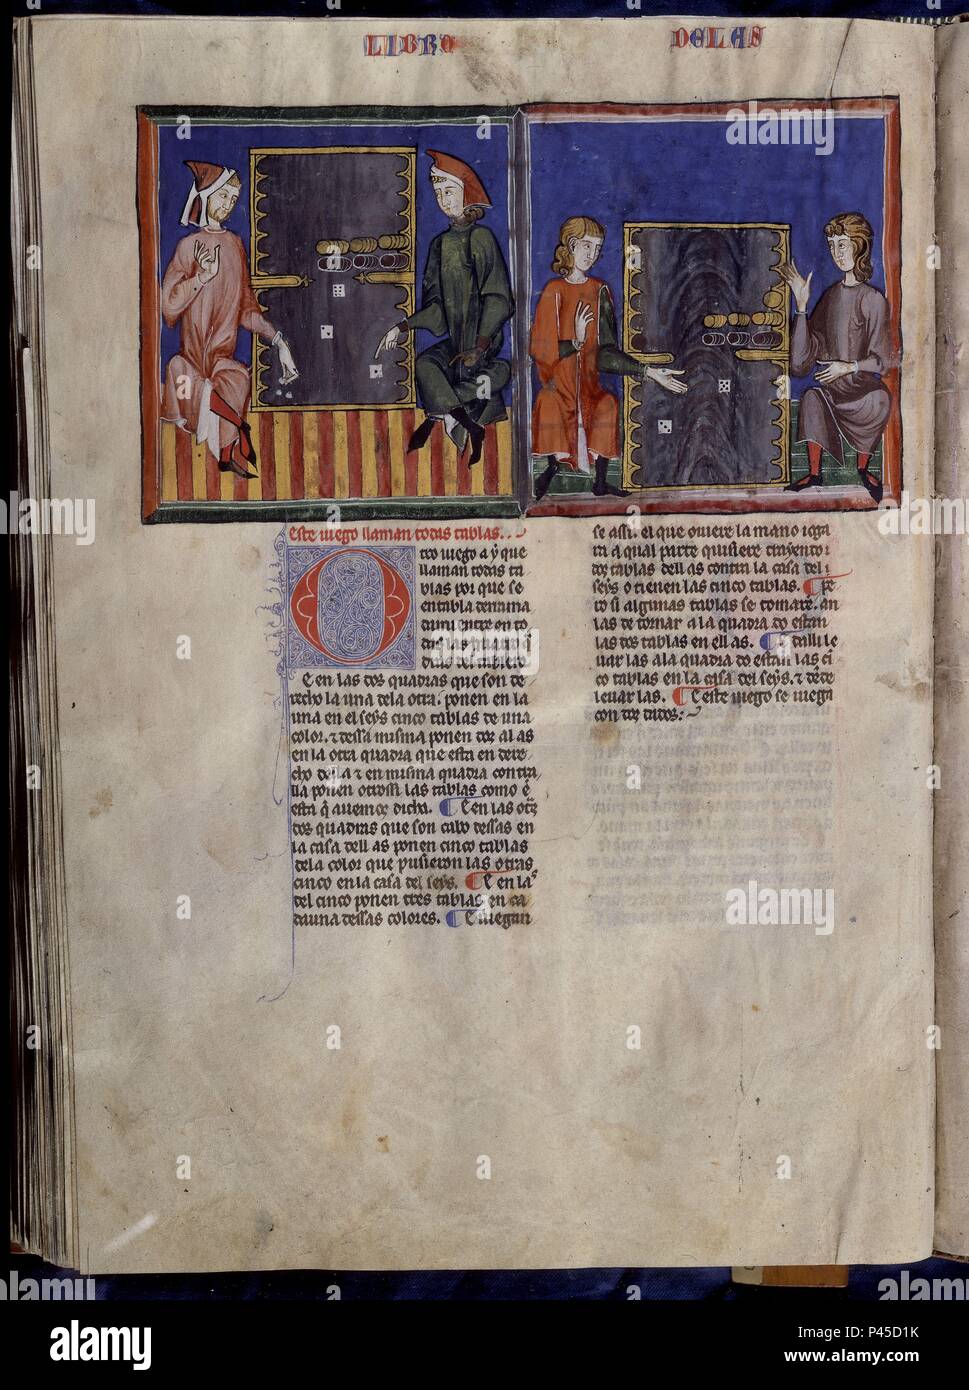 LIBRO DELAS
Este iuego llaman todas tablas..
Otro iuego a y que
llaman todas ta
blas por que se
entabla derrama
da mientre en to
das las quadras q̃
dras del tablero
E en las dos quadras que son de
recho la una dela otra; ponen en la
una en el seys cinco tablas de una
color. ⁊ dessa misma ponen dos al as
en la otra quadra que esta en dere
cho della ⁊ en misma quadra contra
lla ponen otrossi las tablas como e
esta q̃ auemos dicho. ¶ E en las otras
dos quadras que son cabo dessas en
la casa dell as ponen cinco tablas
dela color que pusieron las otras
cinco en la casa del seys. ¶ E en las
del cinco ponen tres tablas en ca
dauna dessas colores. ¶ E iuegan
se assi. el que ouiere la mano ioga
ra a qual parte quisiere trayendo
dos tablas dell as contra la casa del
seys o tienen las cinco tablas. ¶ Pe
ro si algunas tablas se tomarẽ. an
las de tornar a la quadra do estan
las dos tablas en ell as. ¶ E dalli le
uar las ala quadra do están las cĩ
co tablas en la casa del seys. ⁊ dẽde
leuar las. ¶ E este iuego se iuega
con dos dados;
alamy
a
P45D1K
www.alamy.com